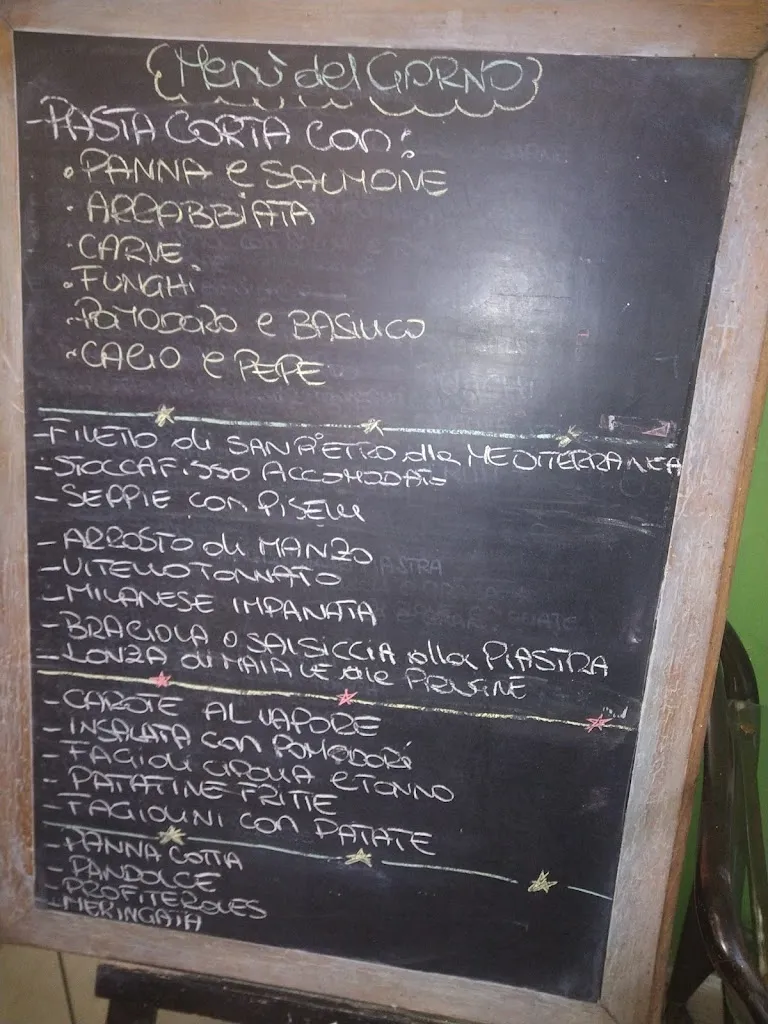 Menù del GIORNO
- PASTA CORTA con:
• PANNA e SALMONE
• ARRABBIATA
• CARNE
• FUNGHi
• POMODORO e BASILICO
• CACIO e PEPE
- FILETTO di SAN PIETRO alla MEDITERRANEA
- STOCCAFISSO ACCOMODATO
- SEPPIE con PISELLI
- ARROSTO di MANZO
- VITELLO TONNATO
- MILANESE IMPANATA
- BRACIOLA o SALSICCIA alla PIASTRA
- LONZA di MAIALE alle PRUGNE
- CAROTE AL VAPORE
- INSALATA con POMODORi
- FAGIOLI CIPOLLA e TONNO
- PATATINE FRITTE
- FAGIOLINI con PATATE
- PANNA COTTA
- PANDOLCE
- PROFITEROLES
- MERINGATA